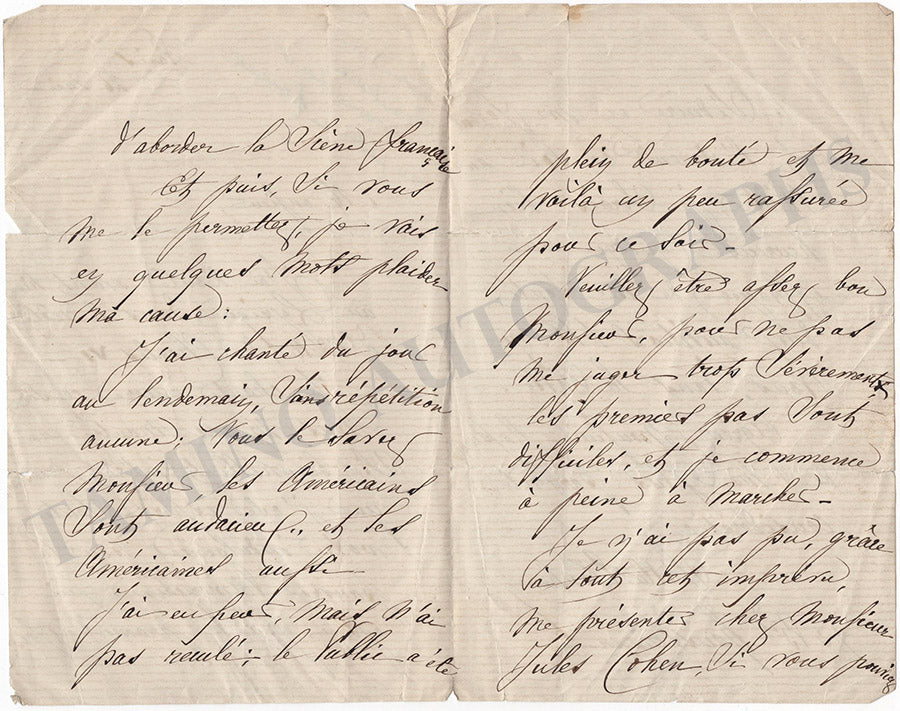 d'aborder la Scène française
Et puis, Si vous
me le permettez, je vais
en quelques mots plaider
ma cause:
J'ai chanté du jour
au lendemain, Sans répétition
aucune. Vous le Savez
Monsieur les Américains
Sont audacieux.. et les
Américaines aussi
J'ai eu peur, mais n'ai
pas reculé; le Public a été
plein de bonté et me
voilà un peu rassurée
pour ce Soir_
Veuillez être assez bon
Monsieur, pour ne pas
me juger trop Sévèrement
les premiers pas Sont
difficiles, et je commence
à peine à marcher_
Je n'ai pas pu, grâce
à tout cet imprévu,
me présenter chez Monsieur
Jules Cohen, Si vous pouviez
TAMINO AUTOGRAPHS